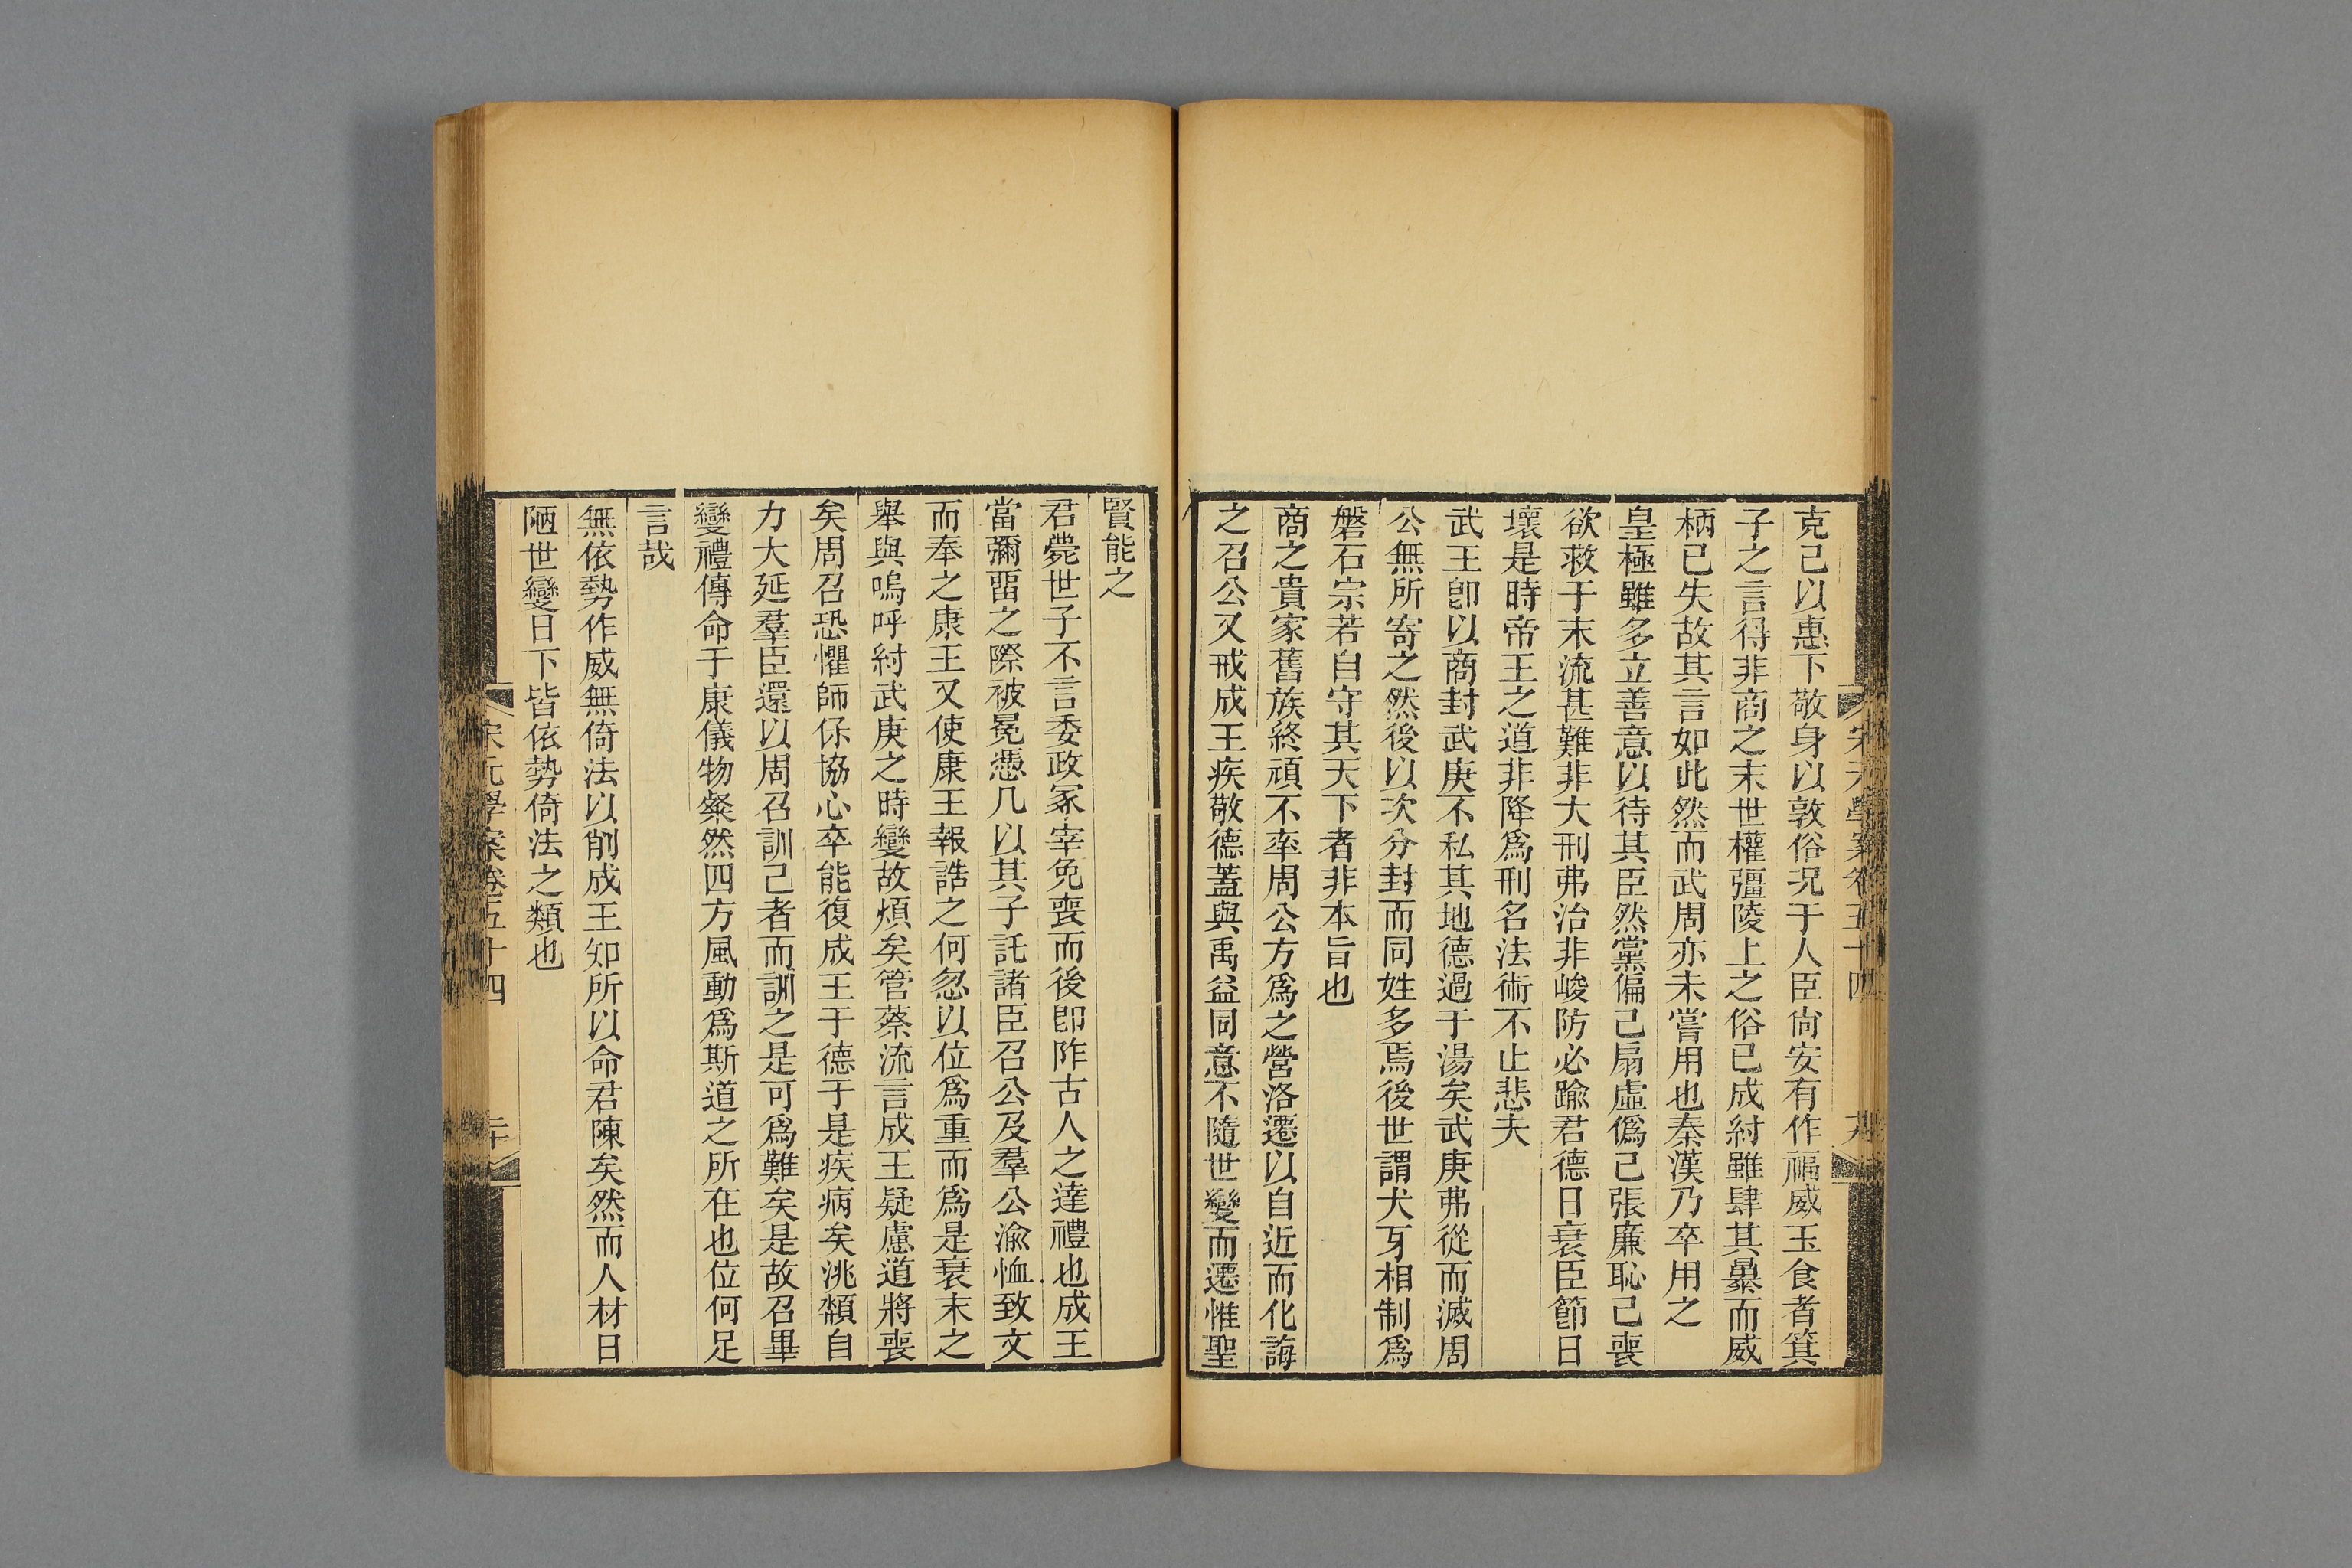 宋元學案卷五十四
克己以惠下敬身以敦俗況于人臣尙安有作福威玉食者箕
子之言得非商之末世權彊陵上之俗已成紂雖肆其暴而威
柄已失故其言如此然而武周亦未嘗用也秦漢乃卒用之
皇極雖多立善意以待其臣然黨偏己扇虛僞己張廉恥己喪
欲救于末流甚難非大刑弗治非峻防必踰君德日衰臣節日
壞是時帝王之道非降爲刑名法術不止悲夫
武王卽以商封武庚不私其地德過于湯矣武庚弗從而滅周
公無所寄之然後以次分封而同姓多焉後世謂犬牙相制爲
磐石宗若自守其天下者非本旨也
商之貴家舊族終頑不率周公方爲之營洛遷以自近而化誨
之召公又戒成王疾敬德蓋與禹益同意不隨世變而遷惟聖
賢能之
君薨世子不言委政冢宰免喪而後卽阼古人之達禮也成王
當彌畱之際被冕憑几以其子託諸臣召公及羣公渝恤致文
而奉之康王又使康王報誥之何忽以位爲重而爲是衰末之
舉與嗚呼紂武庚之時變故煩矣管蔡流言成王疑慮道將喪
矣周召恐懼師保協心卒能復成王于德于是疾病矣洮頮自
力大延羣臣還以周召訓己者而訓之是可爲難矣是故召畢
變禮傳命于康儀物粲然四方風動爲斯道之所在也位何足
言哉
無依勢作威無倚法以削成王知所以命君陳矣然而人材日
陋世變日下皆依勢倚法之類也
宋元學案卷五十四